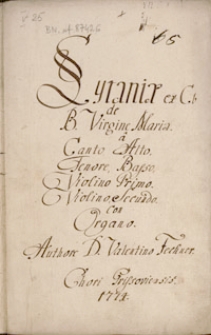 65
Lytaniæ ex C♮
de
B. Virgine Maria.
a
Canto Alto.
Tenore, Basso.
Violino Primo.
Violino Secundo.
con
Organo.
Authore D. Valentino
Chori Grissoviensis.
1774.